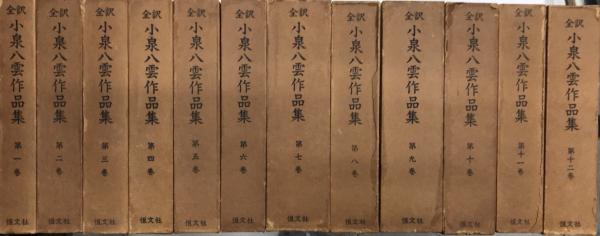 全訳 小泉八雲作品集 第一巻 恒文社
全訳 小泉八雲作品集 第二巻 恒文社
全訳 小泉八雲作品集 第三巻 恒文社
全訳 小泉八雲作品集 第四巻 恒文社
全訳 小泉八雲作品集 第五巻 恒文社
全訳 小泉八雲作品集 第六巻 恒文社
全訳 小泉八雲作品集 第七巻 恒文社
全訳 小泉八雲作品集 第八巻 恒文社
全訳 小泉八雲作品集 第九巻 恒文社
全訳 小泉八雲作品集 第十巻 恒文社
全訳 小泉八雲作品集 第十一巻 恒文社
全訳 小泉八雲作品集 第十二巻 恒文社